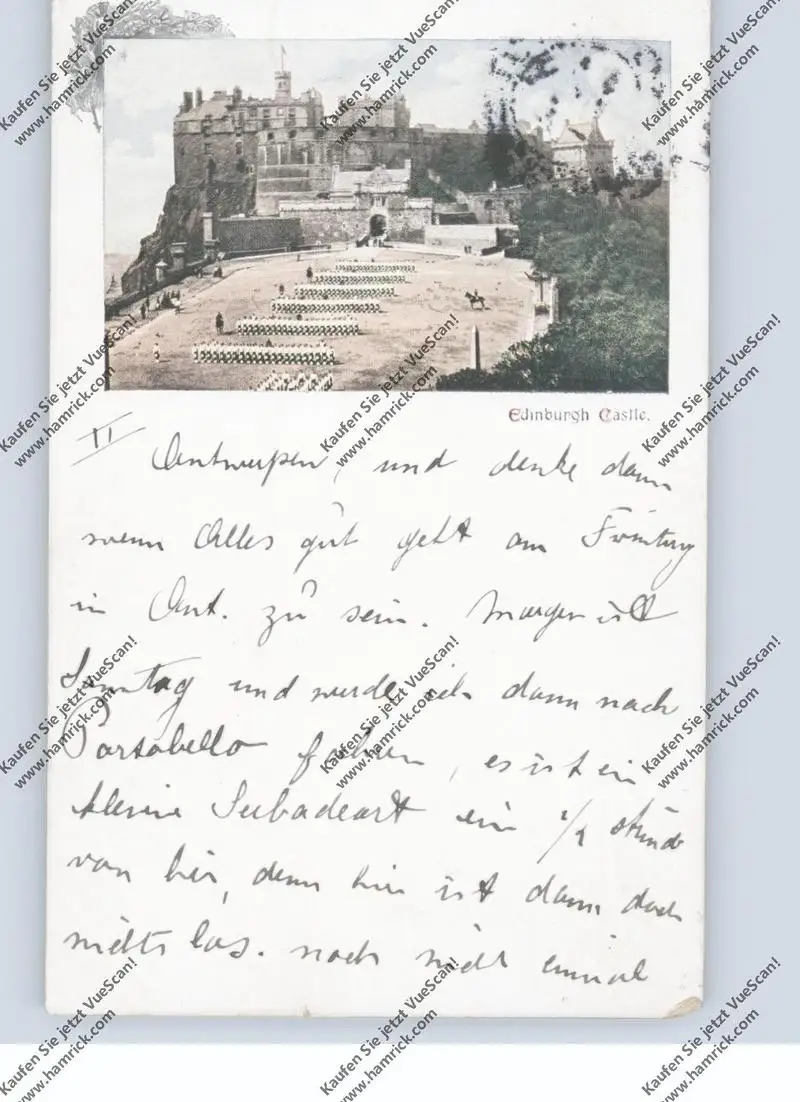 Edinburgh Castle.
II
Antwerpen, und denke dann
wenn Alles gut geht am
in Ant. zu sein. Morgen ist
Sonntag und werde ich dann nach
Portobello fahren, es ist ein
kleine Seebadeort ein 1/2 stunde
von hier, denn hier ist dann doch
nichts los. noch nicht einmal
Kaufen Sie jetzt VueScan!
www.hamrick.com